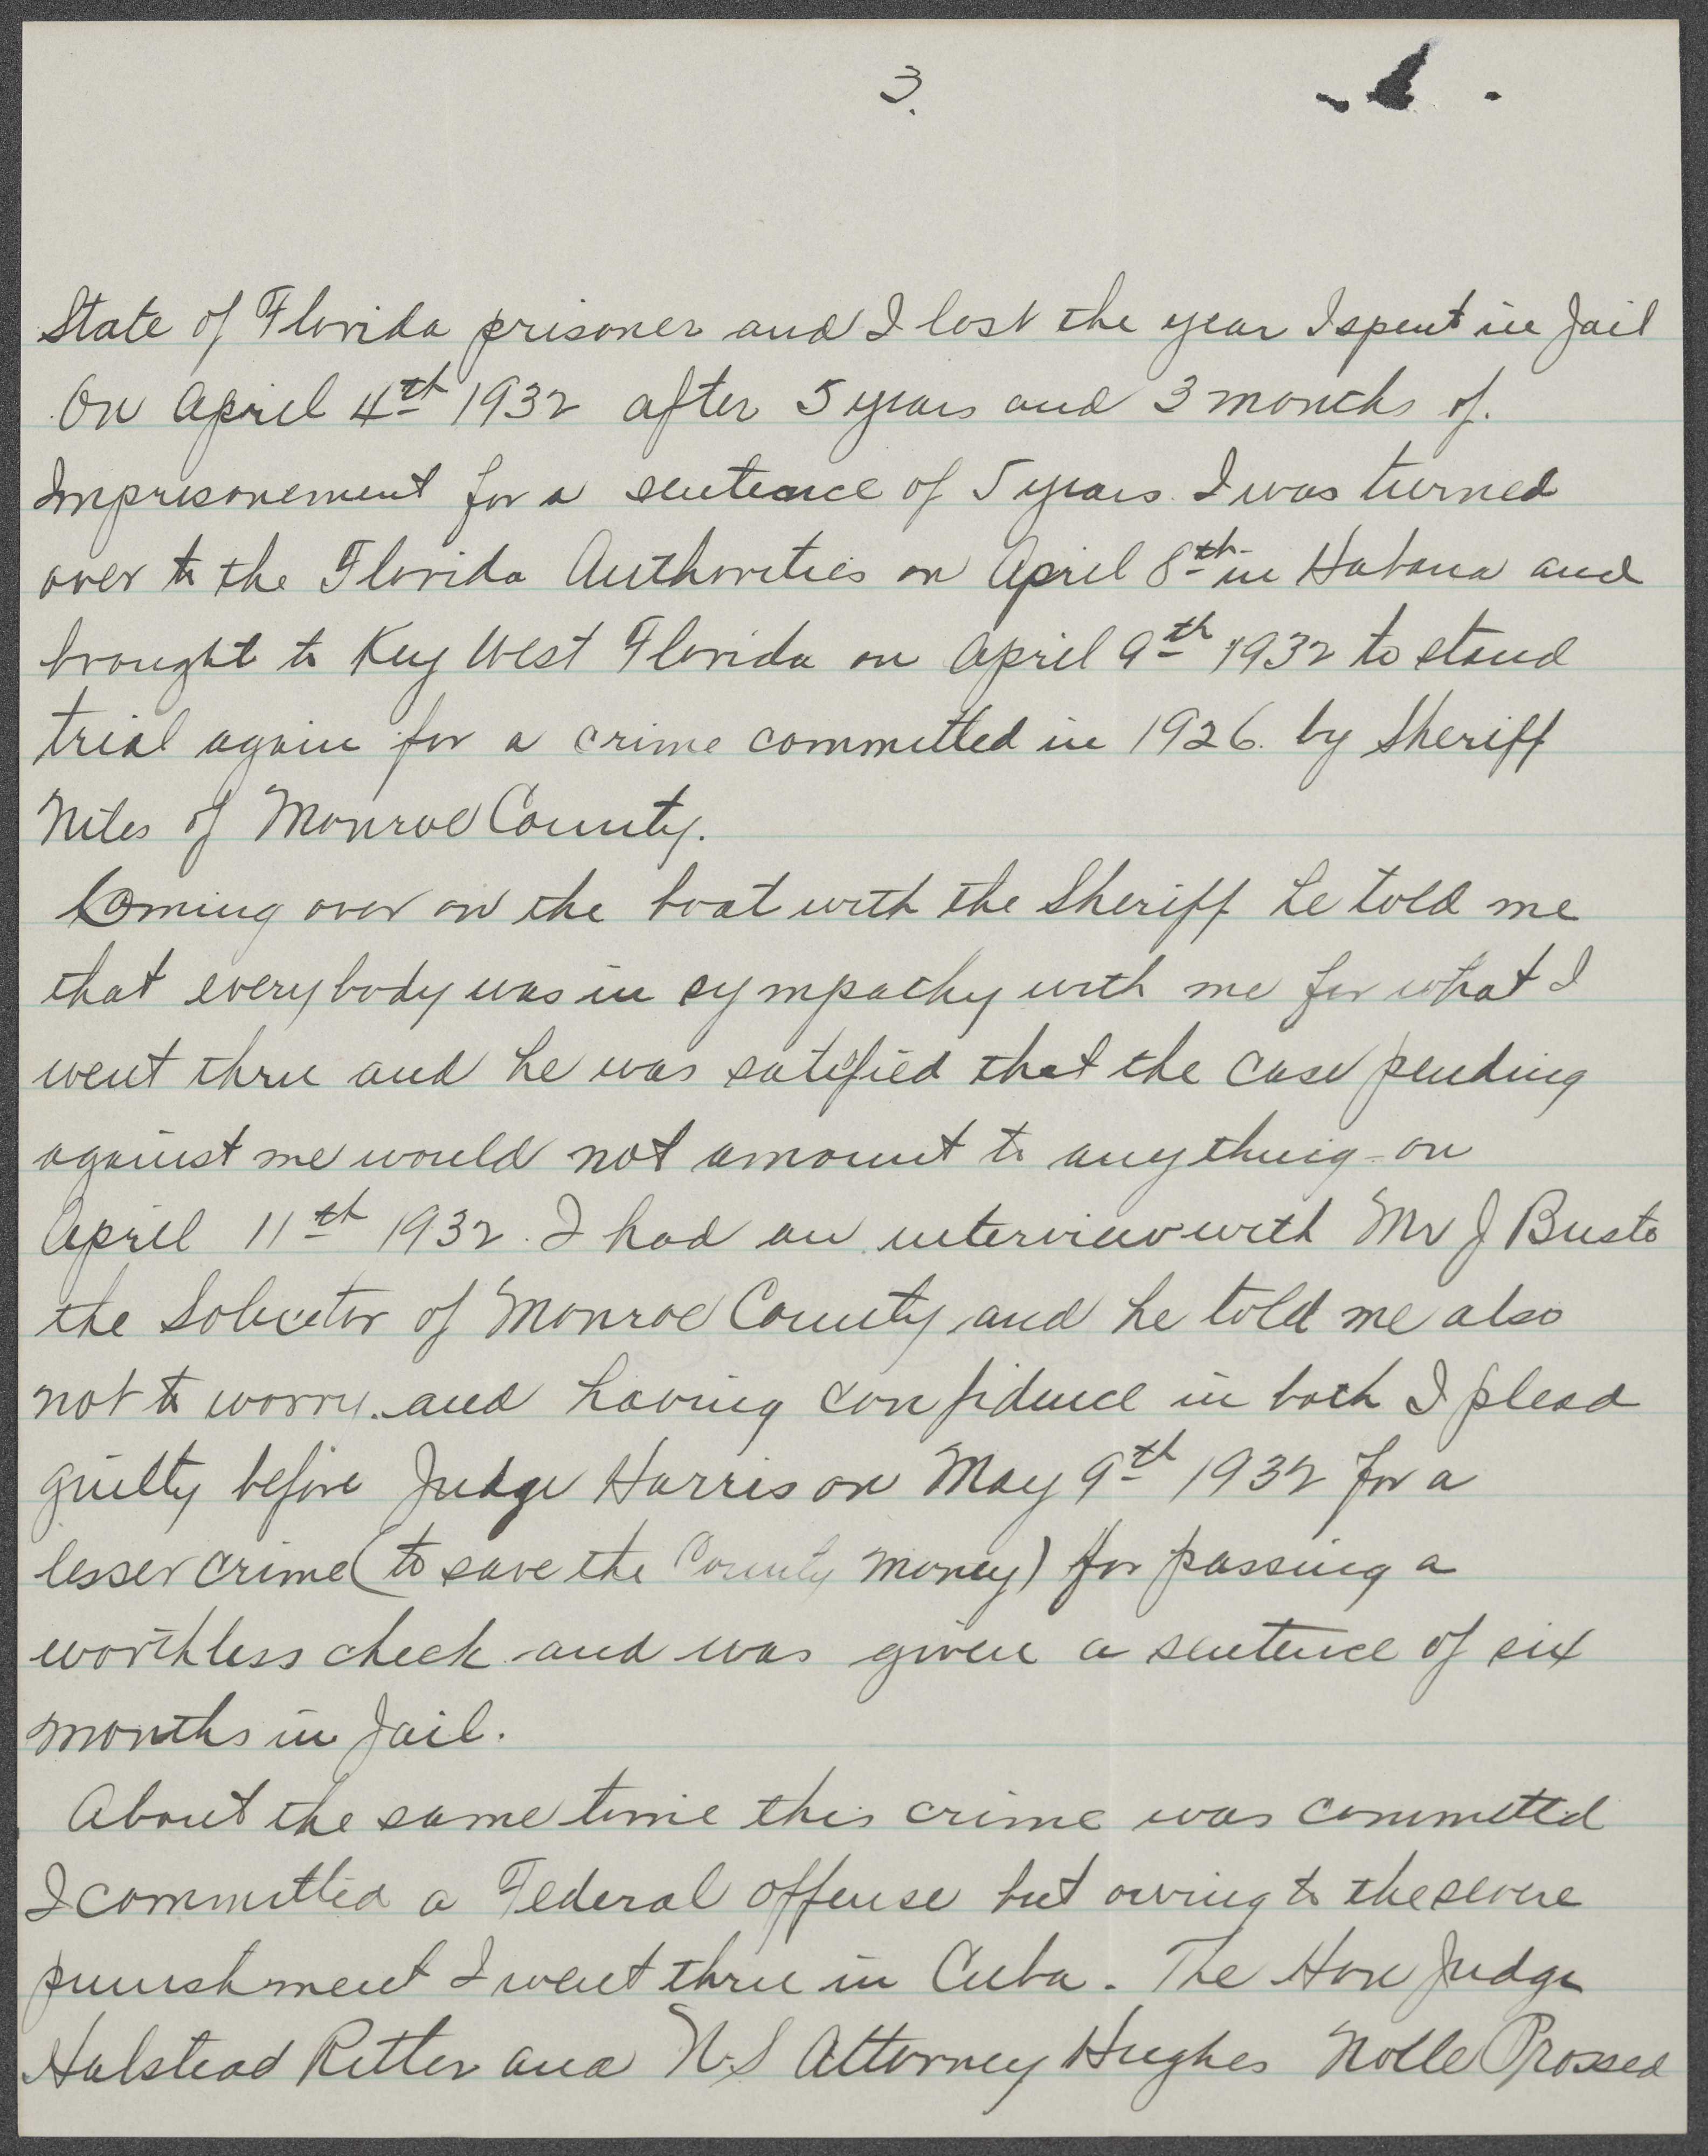 3.
State of Florida prisoner and I lost the year I spent in Jail
On April 4th 1932 after 5 years and 3 months of.
Imprisonement for a sentence of 5 years. I was turned
over to the Florida Authorities on April 8th in Habana and
brought to Key West Florida on April 9th 1932 to stand
trial again for a crime committed in 1926. by Sheriff
Niles of Monroe County.
Coming over on the boat with the Sheriff he told me
that everybody was in sympathy with me for what I
went thru and he was satified that the case pending
against me would not amount to anything - on
April 11th 1932. I had an interview with Mr J Busto
the Solicitor of Monroe County and he told me also
not to worry. and having confidence in both I plead
guilty before Judge Harris on May 9th 1932 for a
lesser crime (to save the County money) for passing a
worthless check and was given a sentence of six
months in Jail.
About the same time this crime was committed
I committed a Federal offense but owing to the severe
punishment I went thru in Cuba. The Hon Judge
Halstead Ritter and U.S Attorney Hughes Nolle Prossed